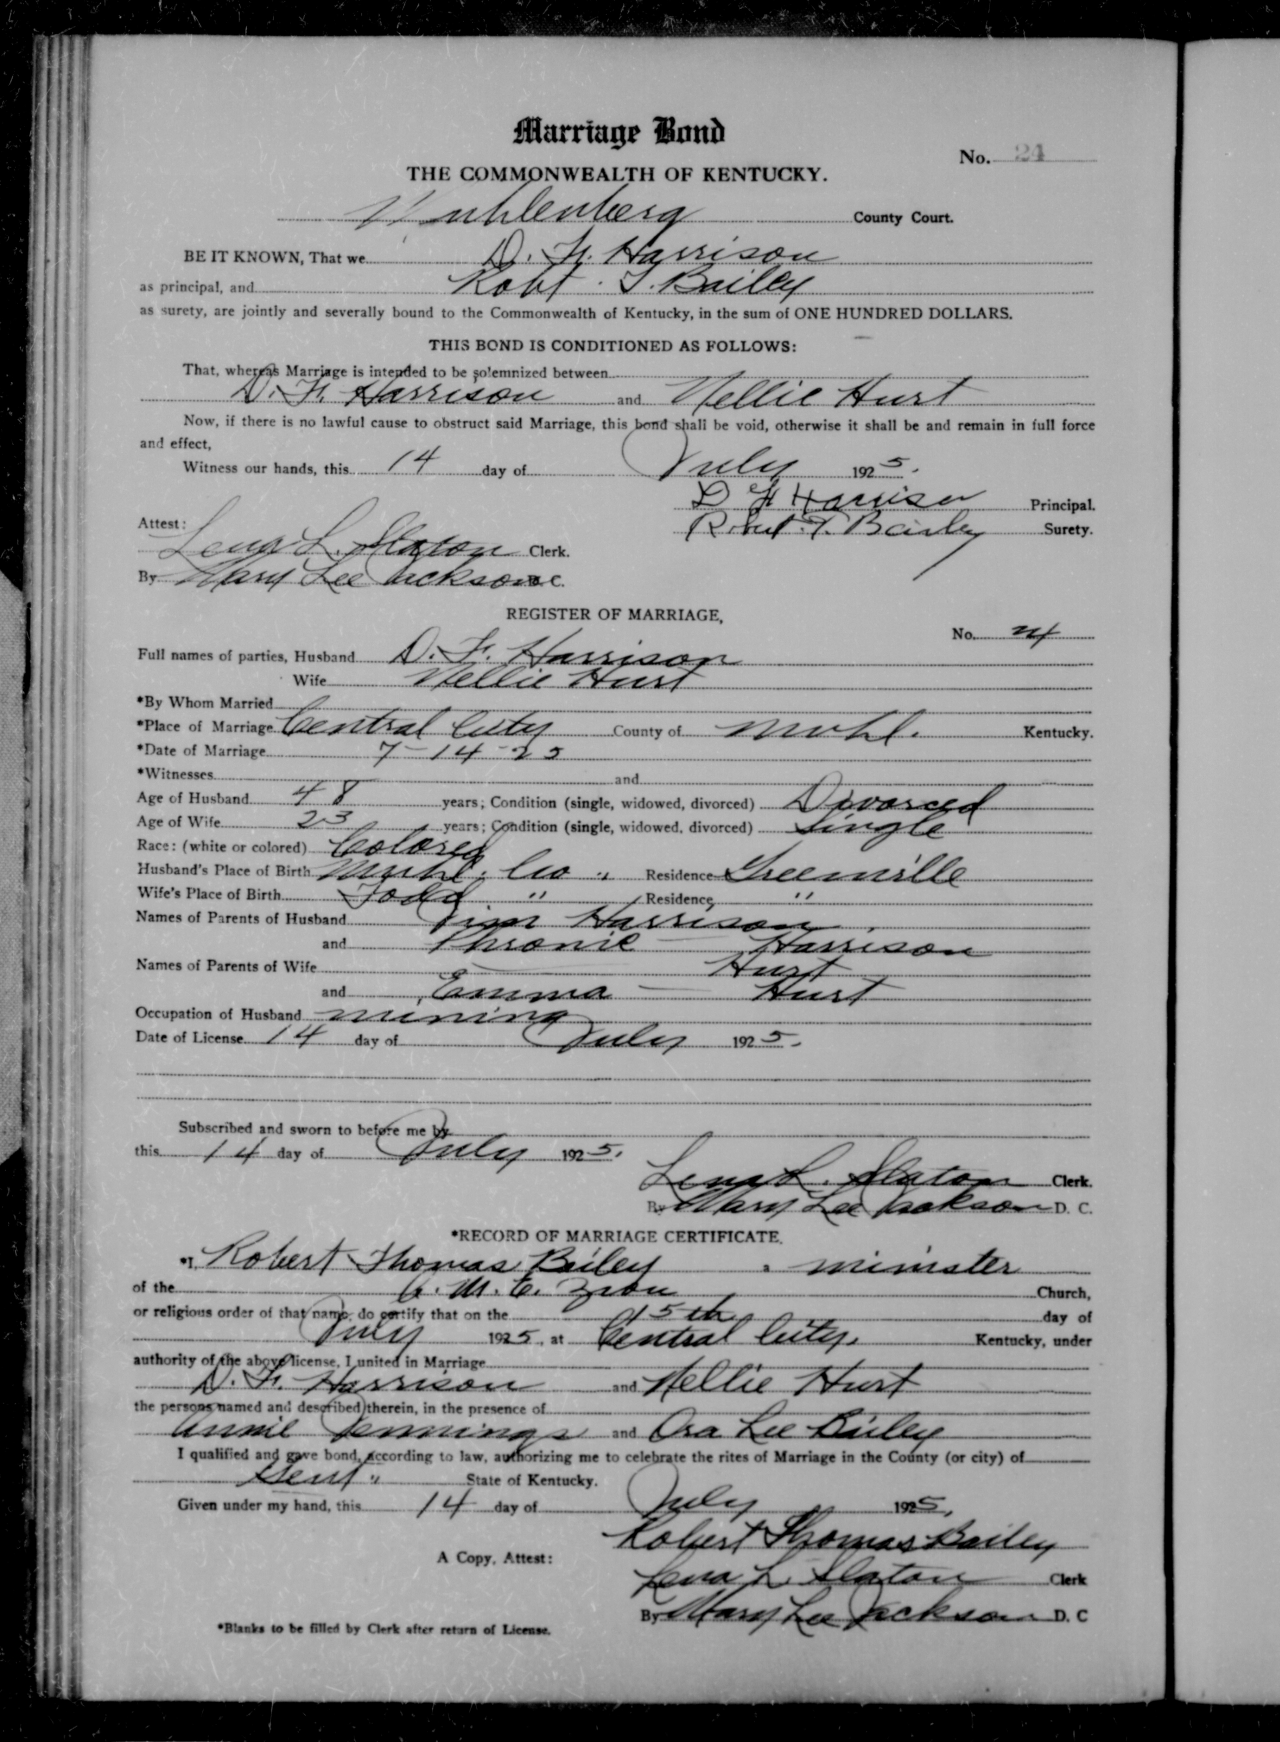 Marriage Bond
No. 24
THE COMMONWEALTH OF KENTUCKY.
Muhlenberg County Court.
BE IT KNOWN, That we D. F. Harrison
as principal, and Robt. T. Bailey
as surety, are jointly and severally bound to the Commonwealth of Kentucky, in the sum of ONE HUNDRED DOLLARS.
THIS BOND IS CONDITIONED AS FOLLOWS:
That, whereas Marriage is intended to be solemnized between
D. F. Harrison and Nellie Hurt
Now, if there is no lawful cause to obstruct said Marriage, this bond shall be void, otherwise it shall be and remain in full force
and effect,
Witness our hands, this 14 day of July 1925.
D F Harrison Principal.
Robert. T. Bailey Surety.
Attest:
Lena L. Slaton Clerk.
By Mary Lee Jackson D. C.
REGISTER OF MARRIAGE,
No. 24
Full names of parties, Husband D. F. Harrison
Wife Nellie Hurt
*By Whom Married
*Place of Marriage Central City County of Muhl. Kentucky.
*Date of Marriage 7-14-25
*Witnesses and
Age of Husband 48 years; Condition (single, widowed, divorced) Divorced
Age of Wife 23 years; Condition (single, widowed, divorced) Single
Race: (white or colored) Colored
Husband's Place of Birth Muhl. Co. Residence Greenville
Wife's Place of Birth Todd " Residence, "
Names of Parents of Husband Jim Harrison
and Harrison
Names of Parents of Wife Hurt
and Emma — Hurt
Occupation of Husband mining
Date of License 14 day of July 1925.
Subscribed and sworn to before me by
this 14 day of July 1925.
Lena L. Slaton Clerk.
By Mary Lee Jackson D. C.
*RECORD OF MARRIAGE CERTIFICATE.
*I, Robert Thomas Bailey, minister
of the A. M. E. Zion Church,
or religious order of that name, do certify that on the 15th day of
July 1925, at Central City, Kentucky, under
authority of the above license, I united in Marriage
D. F. Harrison and Nellie Hurt
the persons named and described therein, in the presence of
Annie Jennings and Ora Lee Bailey
I qualified and gave bond, according to law, authorizing me to celebrate the rites of Marriage in the County (or city) of
State of Kentucky.
Given under my hand, this 14 day of July 1925.
Robert Thomas Bailey
A Copy, Attest:
Lena L. Slaton Clerk
By Mary Lee Jackson D. C
*Blanks to be filled by Clerk after return of License.